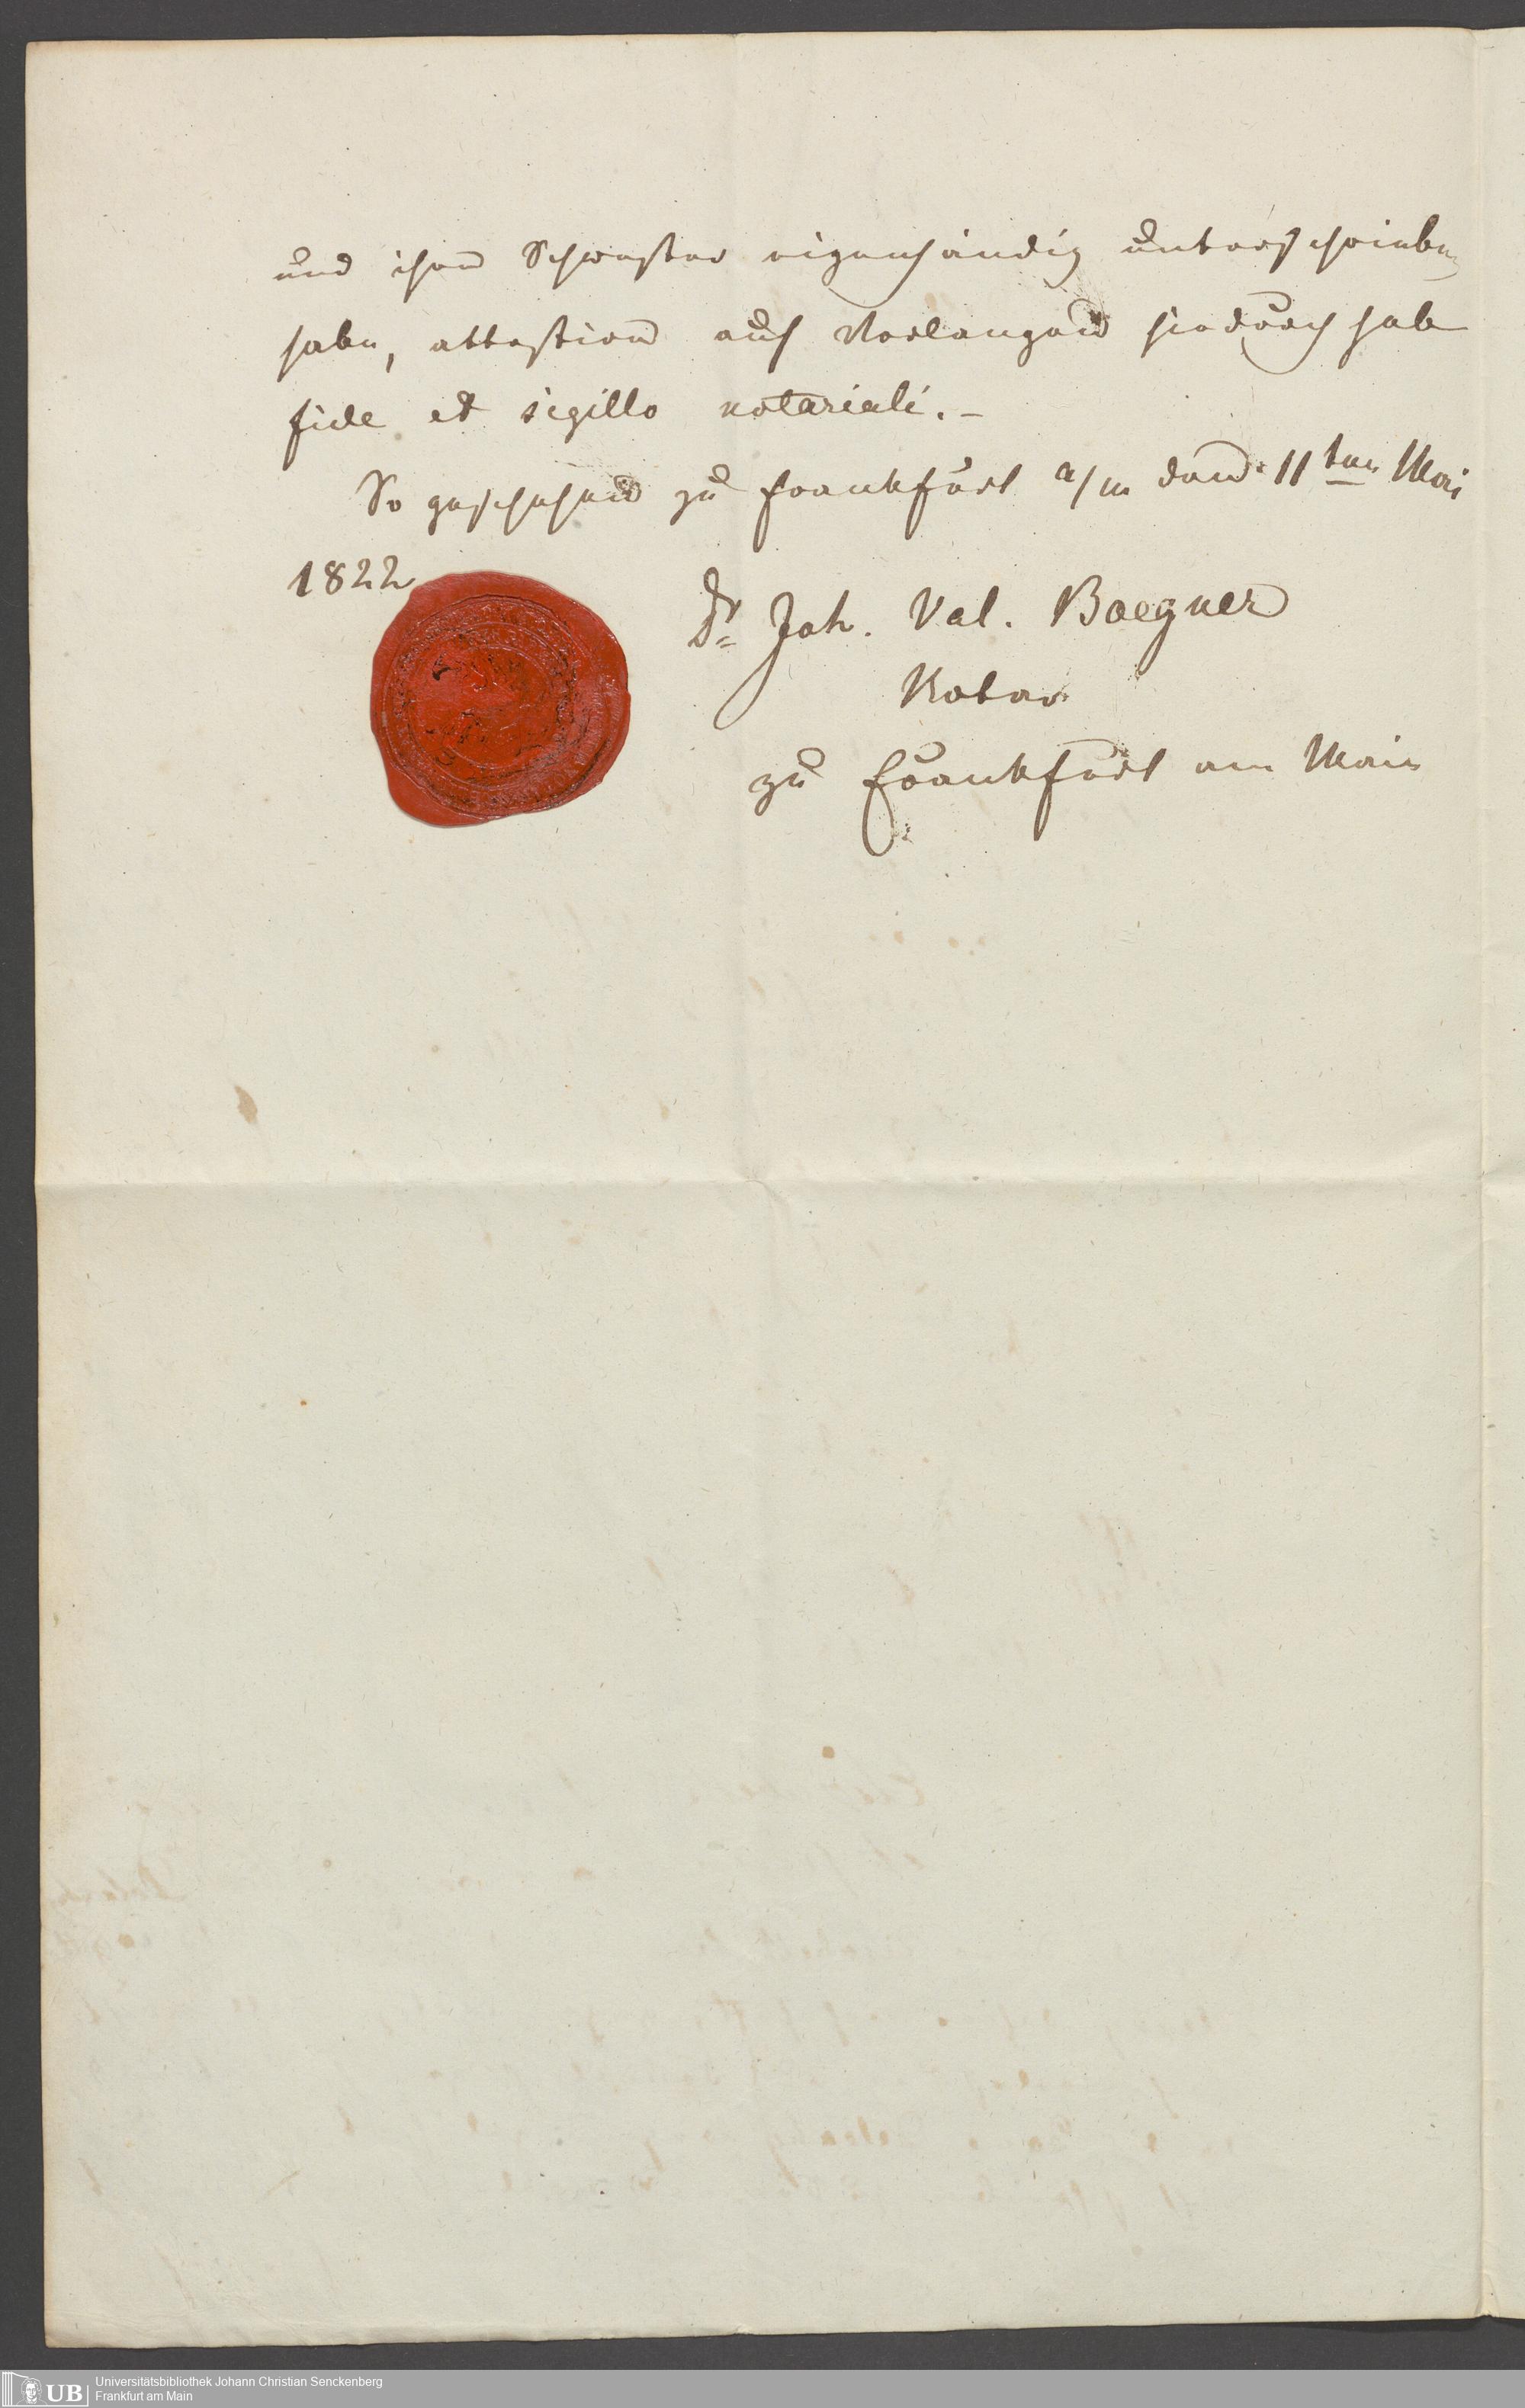 und ihrer Schwester eigenhändig unterschrieben
habe, attestiere auf Verlangen hierdurch sub
fide et sigillo notariali. –
So geschehen zu Frankfurt a/m den 11ten Mai
1822
Dr Joh. Val. Boegner
Notar
zu Frankfurt am Main
UB
Universitätsbibliothek Johann Christian Senckenberg
Frankfurt am Main